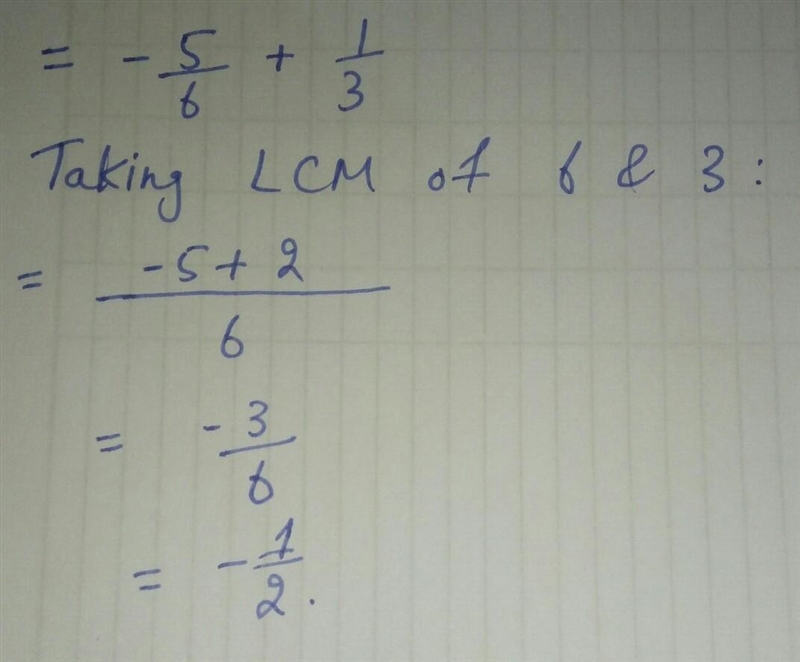 = - 5/6 + 1/3
Taking LCM of 6 & 3:
= -5+2/6
= -3/6
= -1/2.